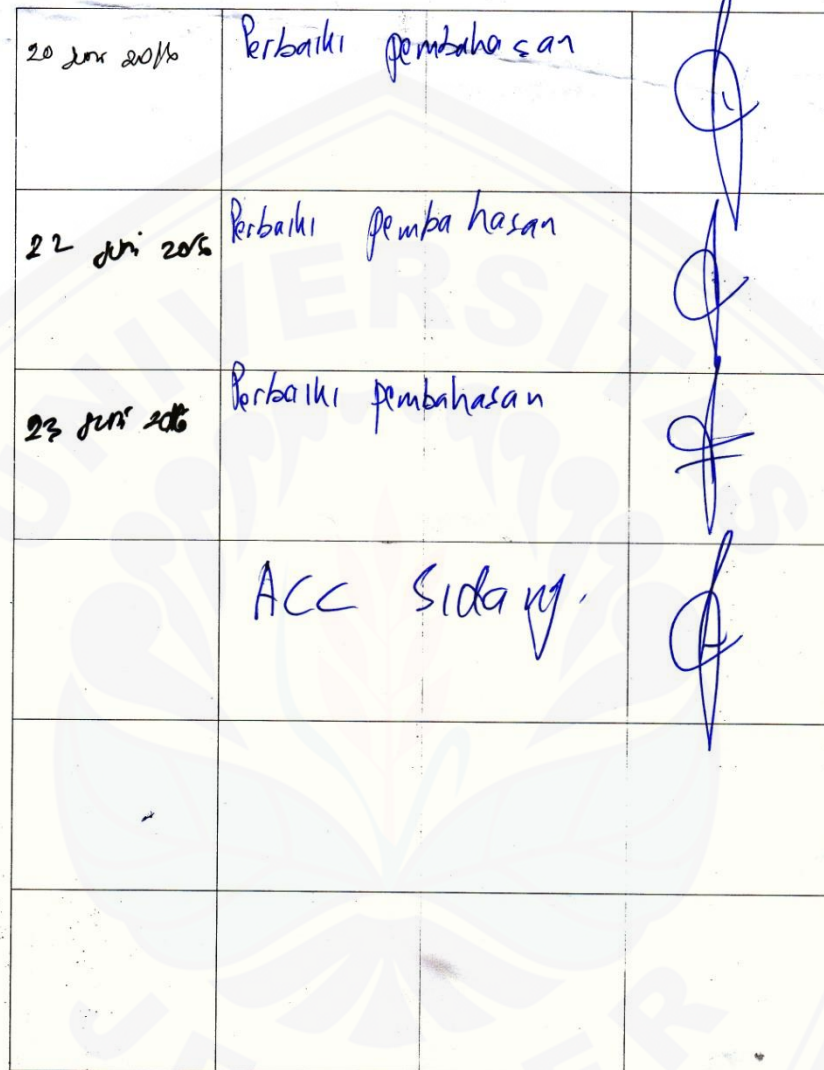 20 Juni 2016
Perbaiki pembahasan
22 Juni 2016
Perbaiki pembahasan
23 Juni 2016
Perbaiki pembahasan
ACC Sidang.
UNIVERSITAS